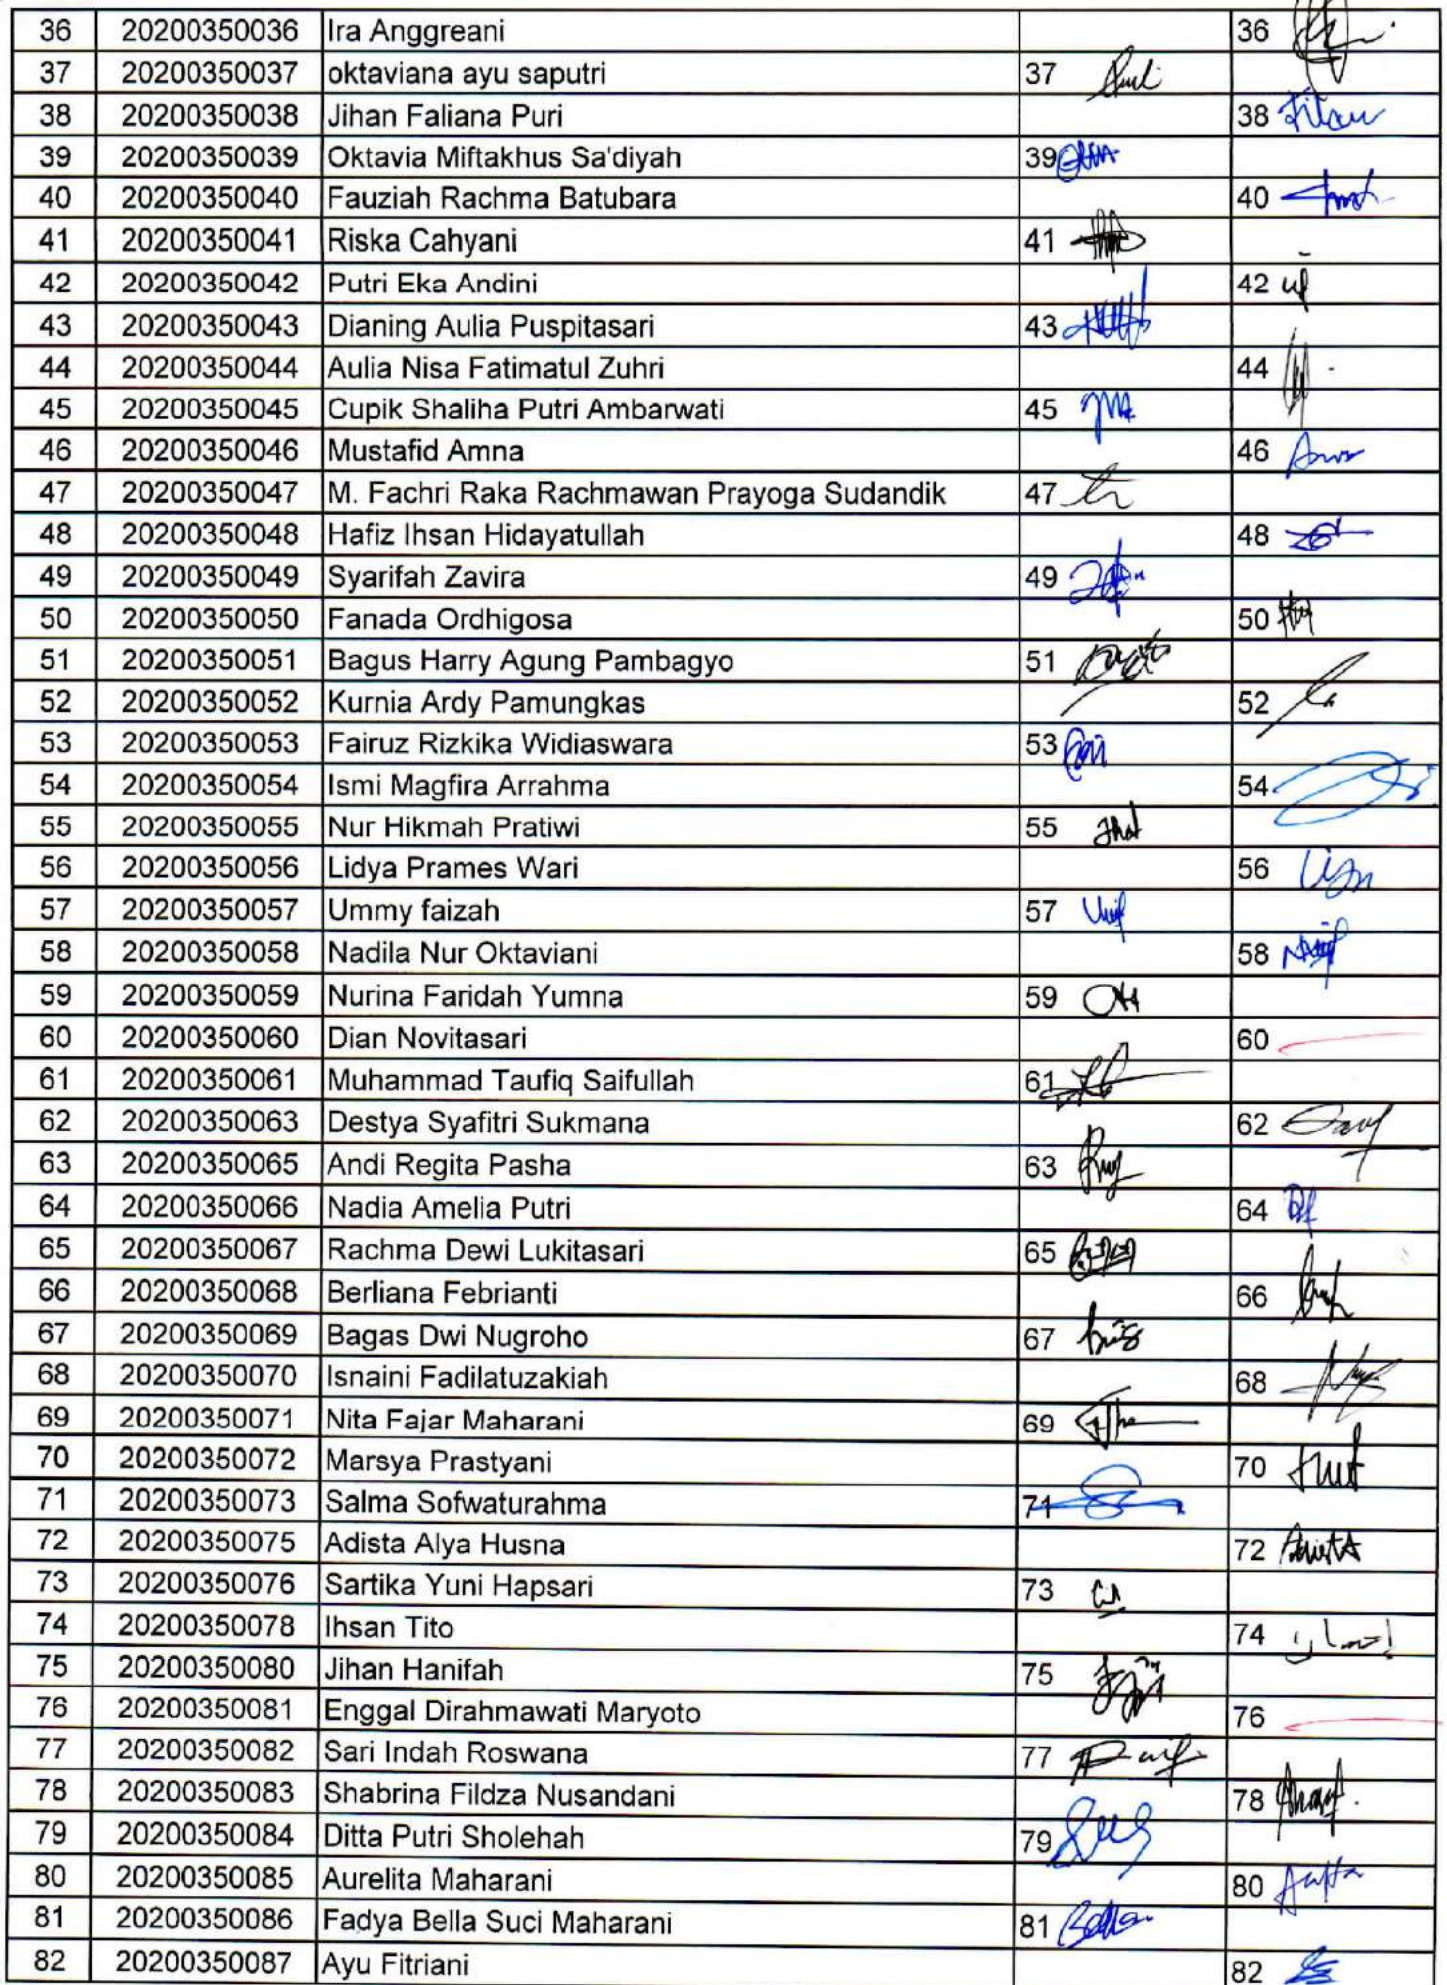 36 20200350036 Ira Anggreani 36
37 20200350037 oktaviana ayu saputri 37
38 20200350038 Jihan Faliana Puri 38
39 20200350039 Oktavia Miftakhus Sa'diyah 39
40 20200350040 Fauziah Rachma Batubara 40
41 20200350041 Riska Cahyani 41
42 20200350042 Putri Eka Andini 42
43 20200350043 Dianing Aulia Puspitasari 43
44 20200350044 Aulia Nisa Fatimatul Zuhri 44
45 20200350045 Cupik Shaliha Putri Ambarwati 45
46 20200350046 Mustafid Amna 46
47 20200350047 M. Fachri Raka Rachmawan Prayoga Sudandik 47
48 20200350048 Hafiz Ihsan Hidayatullah 48
49 20200350049 Syarifah Zavira 49
50 20200350050 Fanada Ordhigosa 50
51 20200350051 Bagus Harry Agung Pambagyo 51
52 20200350052 Kurnia Ardy Pamungkas 52
53 20200350053 Fairuz Rizkika Widiaswara 53
54 20200350054 Ismi Magfira Arrahma 54
55 20200350055 Nur Hikmah Pratiwi 55
56 20200350056 Lidya Prames Wari 56
57 20200350057 Ummy faizah 57
58 20200350058 Nadila Nur Oktaviani 58
59 20200350059 Nurina Faridah Yumna 59
60 20200350060 Dian Novitasari 60
61 20200350061 Muhammad Taufiq Saifullah 61
62 20200350063 Destya Syafitri Sukmana 62
63 20200350065 Andi Regita Pasha 63
64 20200350066 Nadia Amelia Putri 64
65 20200350067 Rachma Dewi Lukitasari 65
66 20200350068 Berliana Febrianti 66
67 20200350069 Bagas Dwi Nugroho 67
68 20200350070 Isnaini Fadilatuzakiah 68
69 20200350071 Nita Fajar Maharani 69
70 20200350072 Marsya Prastyani 70
71 20200350073 Salma Sofwaturahma 71
72 20200350075 Adista Alya Husna 72
73 20200350076 Sartika Yuni Hapsari 73
74 20200350078 Ihsan Tito 74
75 20200350080 Jihan Hanifah 75
76 20200350081 Enggal Dirahmawati Maryoto 76
77 20200350082 Sari Indah Roswana 77
78 20200350083 Shabrina Fildza Nusandani 78
79 20200350084 Ditta Putri Sholehah 79
80 20200350085 Aurelita Maharani 80
81 20200350086 Fadya Bella Suci Maharani 81
82 20200350087 Ayu Fitriani 82